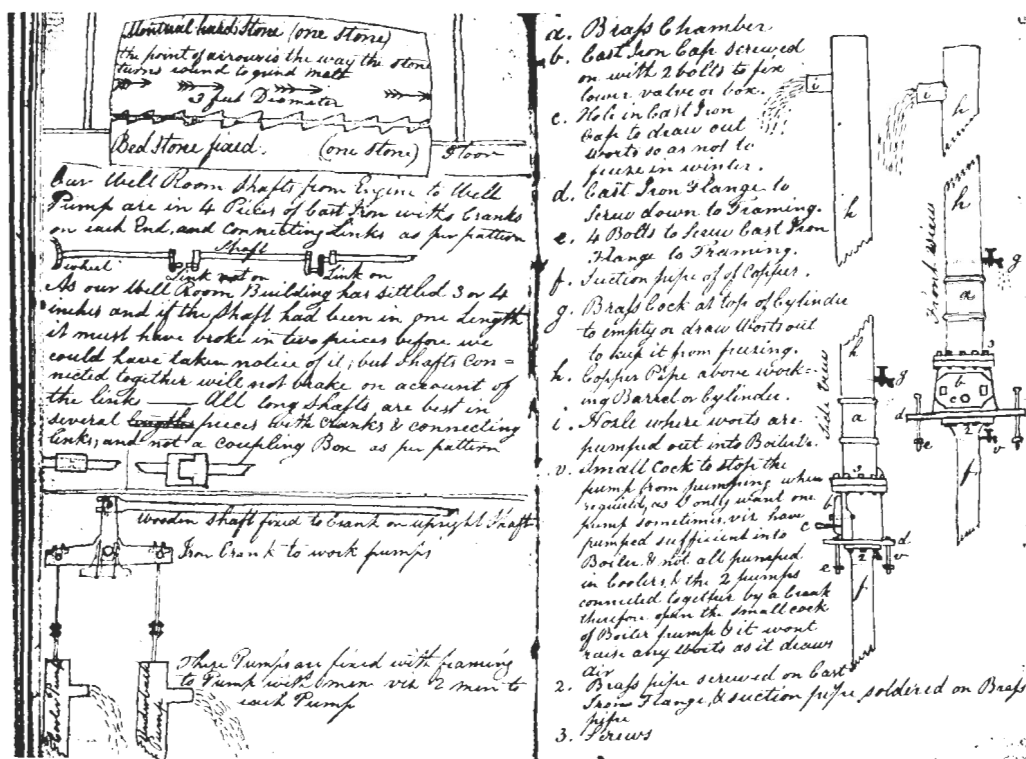 Montreal hard Stone (one stone)
the point of arrow is the way the stone
turns round to grind malt
3 feet Diameter
Bed Stone fixed. (one stone) Floor
Our Well Room Shafts from Engine to Well
Pump are in 4 Pieces of Cast Iron with Cranks
on each End, and Connecting Links as per pattern
Shaft
Wheel Link not on Link on
As our Well Room Building has settled 3 or 4
inches and if the Shaft had been in one Length
it must have broke in two pieces before we
could have taken notice of it; but Shafts con=
nected together will not brake on account of
the link — All long Shafts are best in
several lengths pieces with Cranks & connecting
links, and not a Coupling Box as per pattern
Wooden Shaft fixed to Crank on upright Shaft
Iron Crank to work pumps
These Pumps are fixed with framing
to Pump with men viz 2 men to
each Pump
Cooler Pump
Underback Pump
a. Brass Chamber
b. Cast Iron Cap screwed
on with 2 bolts to fix
lower valve or box.
c. Hole in Cast Iron
Cap to draw out
Worts so as not to
freeze in winter.
d. Cast Iron Flange to
Screw down to Framing.
e. 4 Bolts to Screw Cast Iron
Flange to Framing.
f. Suction pipe of of Copper.
g. Brass Cock at top of Cylinder
to empty or draw Worts out
to keep it from freezing.
h. Copper Pipe above work=
ing Barrel or Cylinder.
i. Nosle where worts are
pumped out into Boilers.
v. Small Cock to stop the
pump from pumping when
required, as I only want one
pump sometimes viz have
pumped sufficient into
Boiler & not all pumped
in Coolers, & the 2 pumps
connected together by a Crank
therefore open the small cock
of Boiler pump & it wont
raise any Worts as it draws
air
2. Brass pipe screwed on Cast
Iron Flange, & suction pipe soldered on Brass
pipe
3. Screws
Side View
i
h
h
g
a
3
b
c
d
2
v
e
f
Front View
i
h
h
g
a
3
b
c
d
2
e
v
f